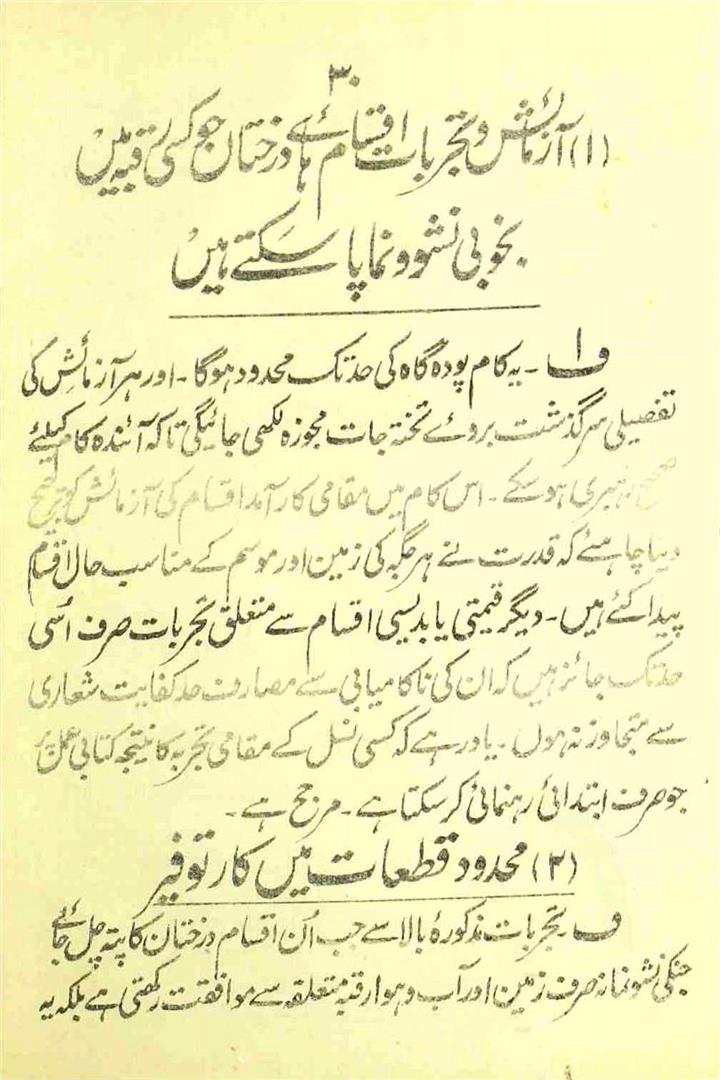 ۳۰
(۱) آزمائش و تجربات اقسام ہائے درختان جو کسی رقبہ میں
بخوبی نشو و نما پا سکتے ہیں
ف۱ ۔ یہ کام پودہ گاہ کی حد تک محدود ہوگا ۔ اور ہر آزمائش کی
تفصیلی سرگذشت بروئے تختہ جات مجوزہ لکھی جائیگی تاکہ آئندہ کام کیلئے
صحیح رہبری ہو سکے ۔ اس کام میں مقامی کارآمد اقسام کی آزمائش کو ترجیح
دینا چاہئے کہ قدرت نے ہر جگہ کی زمین اور موسم کے مناسب حال اقسام
پیدا کئے ہیں ۔ دیگر قیمتی یا بدیسی اقسام سے متعلق تجربات صرف اُسی
حد تک جائز ہیں کہ ان کی ناکامیابی سے مصارف حد کفایت شعاری
سے متجاوز نہ ہوں ۔ یاد رہے کہ کسی نسل کے مقامی تجربہ کا نتیجہ کتابی عمل پر
جو صرف ابتدائی رہنمائی کر سکتا ہے ۔ مرجح ہے ۔
(۲) محدود قطعات میں کار توفیر
ف تجربات مذکورۂ بالا سے جب اُن اقسام درختان کا پتہ چل جائے
جنکی نشو نما نہ صرف زمین اور آب و ہوا رقبہ متعلقہ سے موافقت رکھتی ہے بلکہ یہ